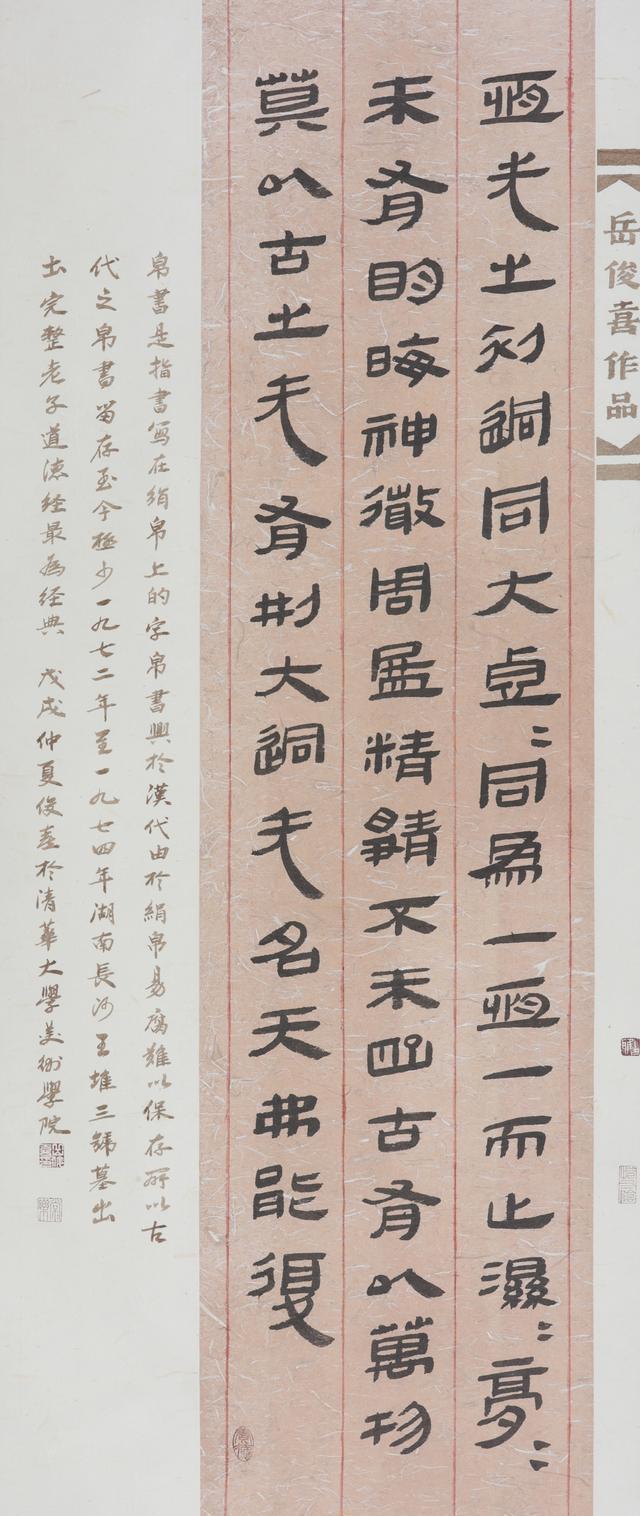 岳俊喜作品
恆无之初迵同大虛〓同爲一恆一而止濕〓夢〓
未有明晦神微周盈精靜不未巸古有以萬物
莫以古之无有刑大迵无名天弗能復
帛書是指書寫在绢帛上的字帛書興於漢代由於絹帛易腐難以保存所以古
代之帛書留存至今極少一九七二年至一九七四年湖南長沙王堆三號墓出
土完整老子道德经最為经典 戊戌仲夏俊喜於清華大學美術學院